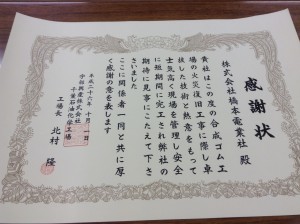 感謝状
株式会社橋本電業社 殿
貴社はこの度の合成ゴム工
場の火災復旧工事に際し卓
抜した技術と熱意をもって
士気高く現場を管理し安全
に短期間に完工され弊社の
期待に見事にこたえて下さ
いました
ここに関係者一同と共に厚
く感謝の意を表します
平成二十六年 十月 一日
宇部興産株式会社
千葉石油化学工場
工場長 北村 隆